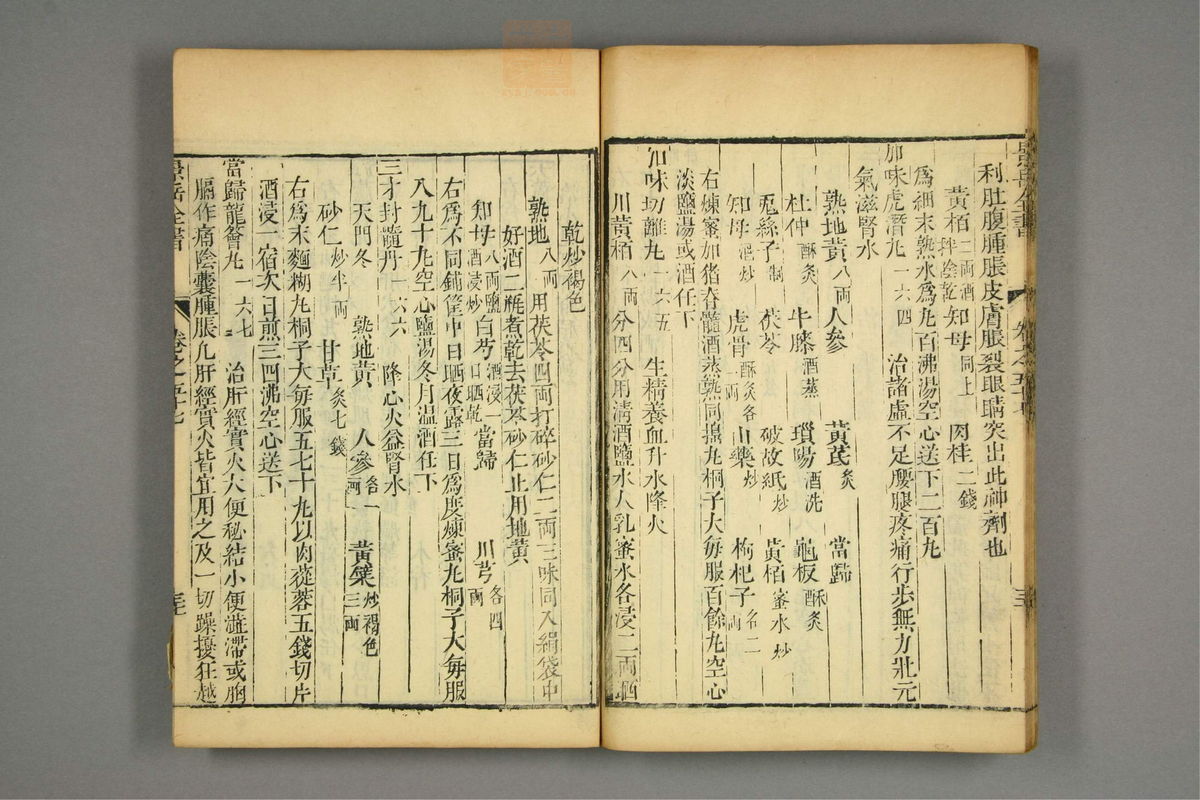 利肚腹腫脹皮膚脹裂眼睛突出此神劑也
黃栢二兩酒拌陰乾 知母同上 肉桂二錢
為細末熟水為丸百沸湯空心送下二百丸
加味虎潛丸一六四 治諸虛不足腰腿疼痛行步無力壯元
氣滋腎水
熟地黃八兩 人參 黃芪炙 當歸
杜仲酥炙 牛膝酒蒸 瑣陽酒洗 龜板酥炙
兎絲子製 茯苓 破故紙炒 黃栢蜜水炒
知母酒炒 虎骨酥炙各一兩 山藥炒 枸杞子各二兩
右煉蜜加猪脊髓酒蒸熟同搗丸桐子大每服百餘丸空心
淡鹽湯或酒任下
加味坎離丸一六五 生精養血升水降火
川黃栢八兩 分四分用清酒鹽水人乳蜜水各浸二兩晒
乾炒褐色
熟地八兩 用茯苓四兩打碎砂仁二兩三味同入絹袋中
好酒二瓶煮乾去茯苓砂仁止用地黃
知母八兩鹽酒浸炒 白芍酒浸一日晒乾 當歸 川芎各四兩
右為不同鋪筐中日晒夜露三日為度煉蜜丸桐子大每服
八九十丸空心鹽湯冬月温酒任下
三才封髓丹一六六 降心火益腎水
天門冬 熟地黃 人參各一兩 黃蘗炒褐色三兩
砂仁炒半兩 甘草炙七錢
右為末麵糊丸桐子大每服五七十丸以肉蓯蓉五錢切片
酒浸一宿次日煎三四沸空心送下
當歸龍薈丸一六七 治肝經實火大便秘結小便澁滯或胸
膈作痛陰囊腫脹凢肝經實火皆宜用之及一切躁擾狂越
景岳全書 卷之五十七